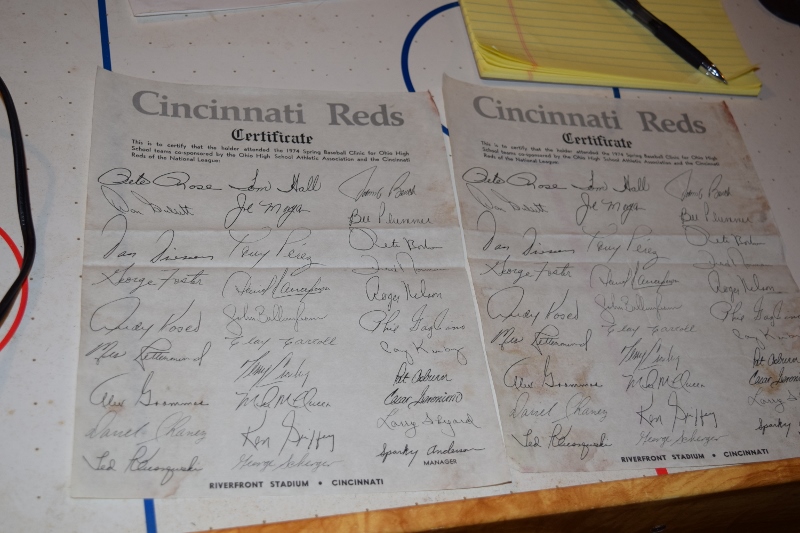 Cincinnati Reds
Certificate
This is to certify that the holder attended the 1974 Spring Baseball Clinic for Ohio High
School teams co-sponsored by the Ohio High School Athletic Association and the Cincinnati
Reds of the National League:
Pete Rose Tom Hall Johnny Bench
Joe Morgan Bill Plummer
Dan Driessen Tony Perez
George Foster Roger Nelson
Andy Kosco Phil Gagliano
Merv Rettenmund Clay Carroll Clay Kirby
Pat Osburn
Alex Grammas Cesar Geronimo
Darrel Chaney Ken Griffey Larry Shepard
Ted Kluszewski George Scherger Sparky Anderson
MANAGER
RIVERFRONT STADIUM • CINCINNATI
Cincinnati Reds
Certificate
This is to certify that the holder attended the 1974 Spring Baseball Clinic for Ohio High
School teams co-sponsored by the Ohio High School Athletic Association and the Cincinnati
Reds of the National League:
Pete Rose Tom Hall Johnny Bench
Joe Morgan Bill Plummer
Dan Driessen Tony Perez
George Foster Roger Nelson
Andy Kosco Phil Gagliano
Merv Rettenmund Clay Carroll
Pat Osburn
Alex Grammas Cesar Geronimo
Darrel Chaney Ken Griffey Larry S
Ted Kluszewski George Scherger Sparky
RIVERFRONT STADIUM • CINCINNATI